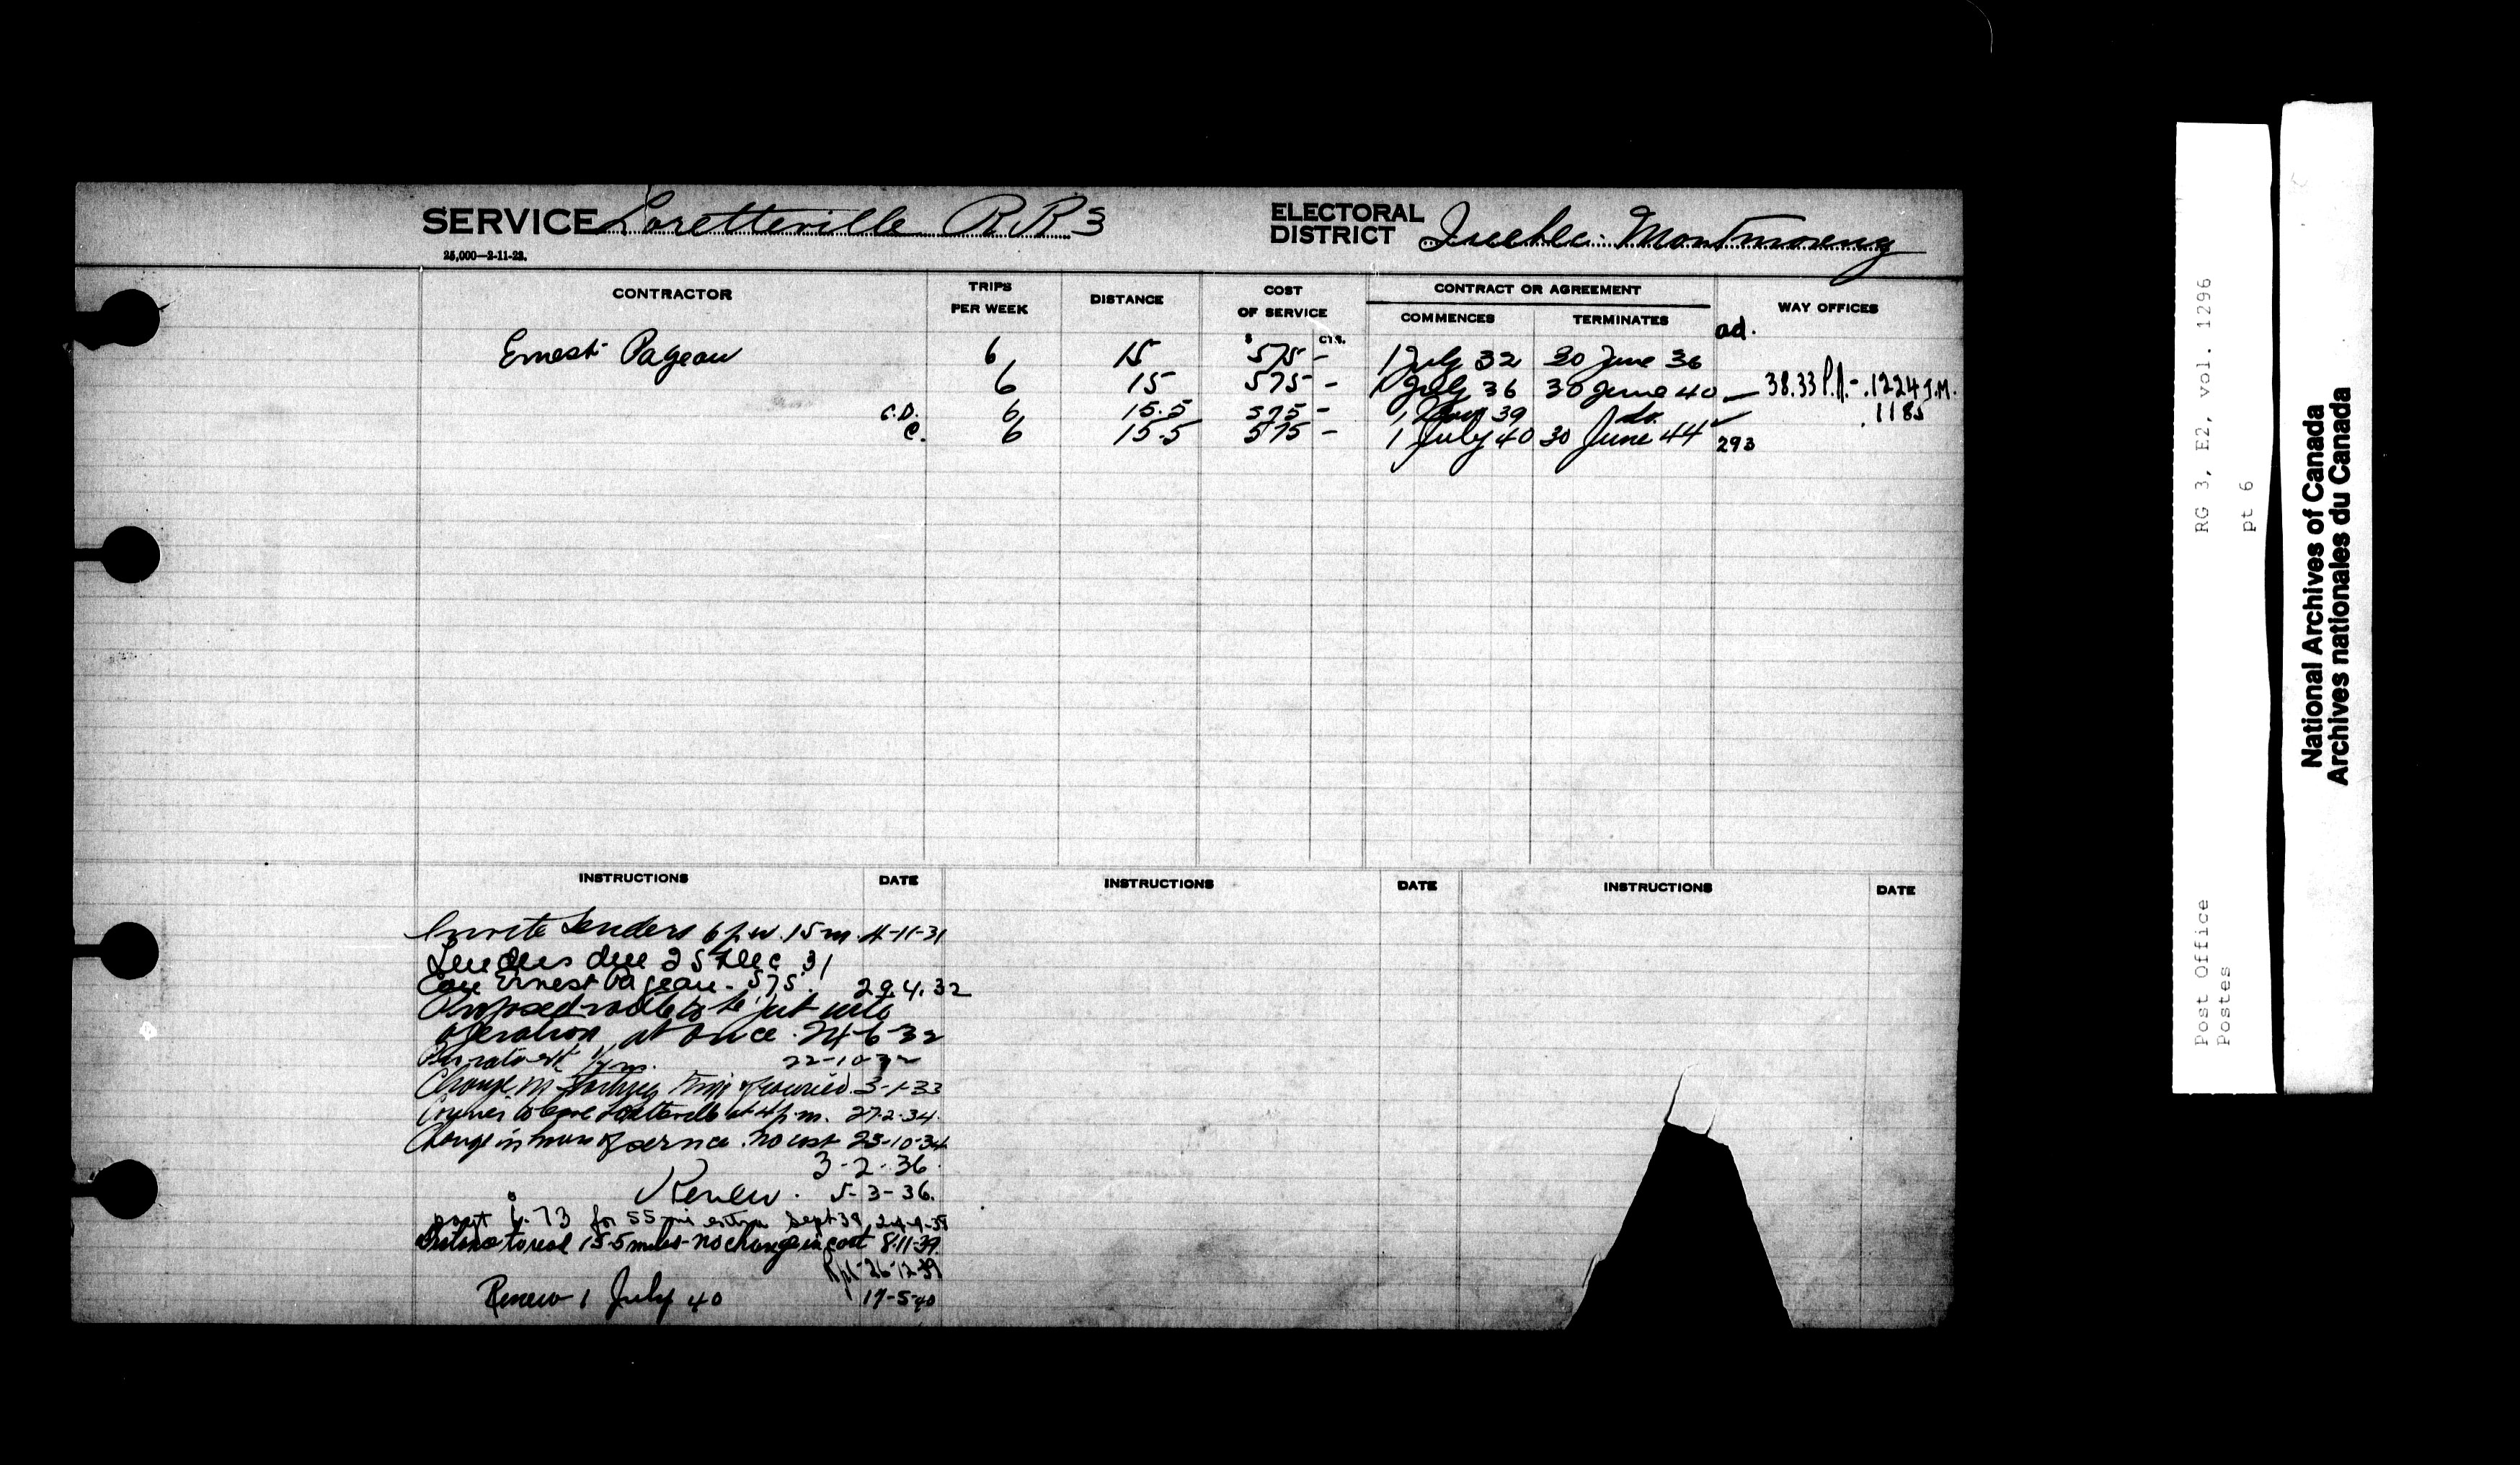 SERVICE Loretteville R.R 3 ELECTORAL DISTRICT Quebec-Montmorency
25,000—2-11-28.
CONTRACTOR TRIPS PER WEEK DISTANCE COST OF SERVICE CONTRACT OR AGREEMENT WAY OFFICES
COMMENCES TERMINATES
$ CTS. ad.
Ernest Pageau 6 15 575 - 1 July 32 30 June 36
6 15 575 - 1 July 36 30 June 40 — 38.33 P.A- .1224 J.M.
C.D. 6 15.5 575 - 1, 39 do. .1185
C. 6 15.5 575 - 1 July 40 30 June 44 293
INSTRUCTIONS DATE INSTRUCTIONS DATE INSTRUCTIONS DATE
Invite Tenders 6 p.w. 15 m. 4-11-31
Tenders due 25 Dec 31
Ernest Pageau - 575. 29.4.32
Proposed route to be put into
operation at once. 24-6-32
1/2 m. 22-10-32
Change in 3-1-33
Courier to leave Loretteville at 4 p.m. 27-2-34.
Change in hours of service. no cost 25-10-34
3-2-36.
Renew. 5-3-36.
6.73 for 55 mi extra Sept 39
Distance to read 15.5 miles - no change in cost 8-11-39.
Rpt- 26-12-39
Renew 1 July 40 17-5-40
RG 3, E2, vol. 1296
pt 6
Post Office
Postes
National Archives of Canada
Archives nationales du Canada